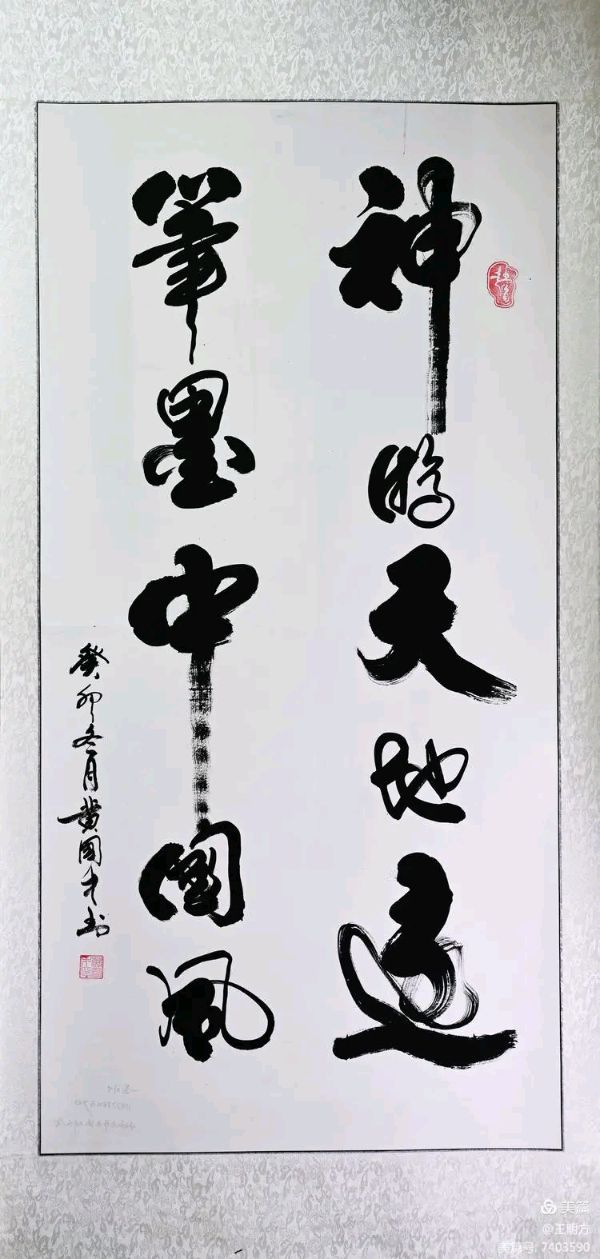 神游天地远
筆墨中國風
癸卯冬月黄国才书
美篇
@王明方
美篇号: 7403590